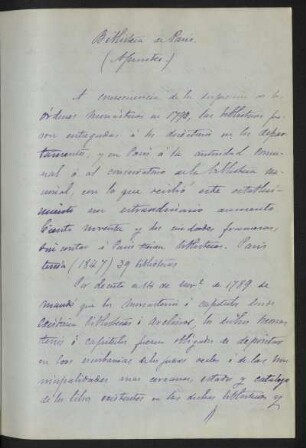 Bibliotecas de Paris.
(Apuntes.)
A consecuencia de la supresion de las
órdenes monásticas en 1790, las bibliotecas fue
ron entregadas á los directorios de los depar
tamentos, y en Paris á la autoridad comu
nal ó al conservatorio de la biblioteca na
cional, con lo que recibió este estableci
miento un extraordinario aumento.
Ciento noventa y los ciudades francesas,
sin contar á Paris tenian bibliotecas. Paris
tenia (1847) 39 bibliotecas
Por decreto de 14 de nov.e de 1789 se
mandó que los monasterios ó capítulos donde
existieran bibliotecas ó archivos, los dichos monas
terios ó capítulos fueren obligados á depositar
en las escribanias de los jueces reales ó de las mu
nicipalidades mas cercanas, estados y catálogo
de los libros existentes en las dichas bibliotecas y